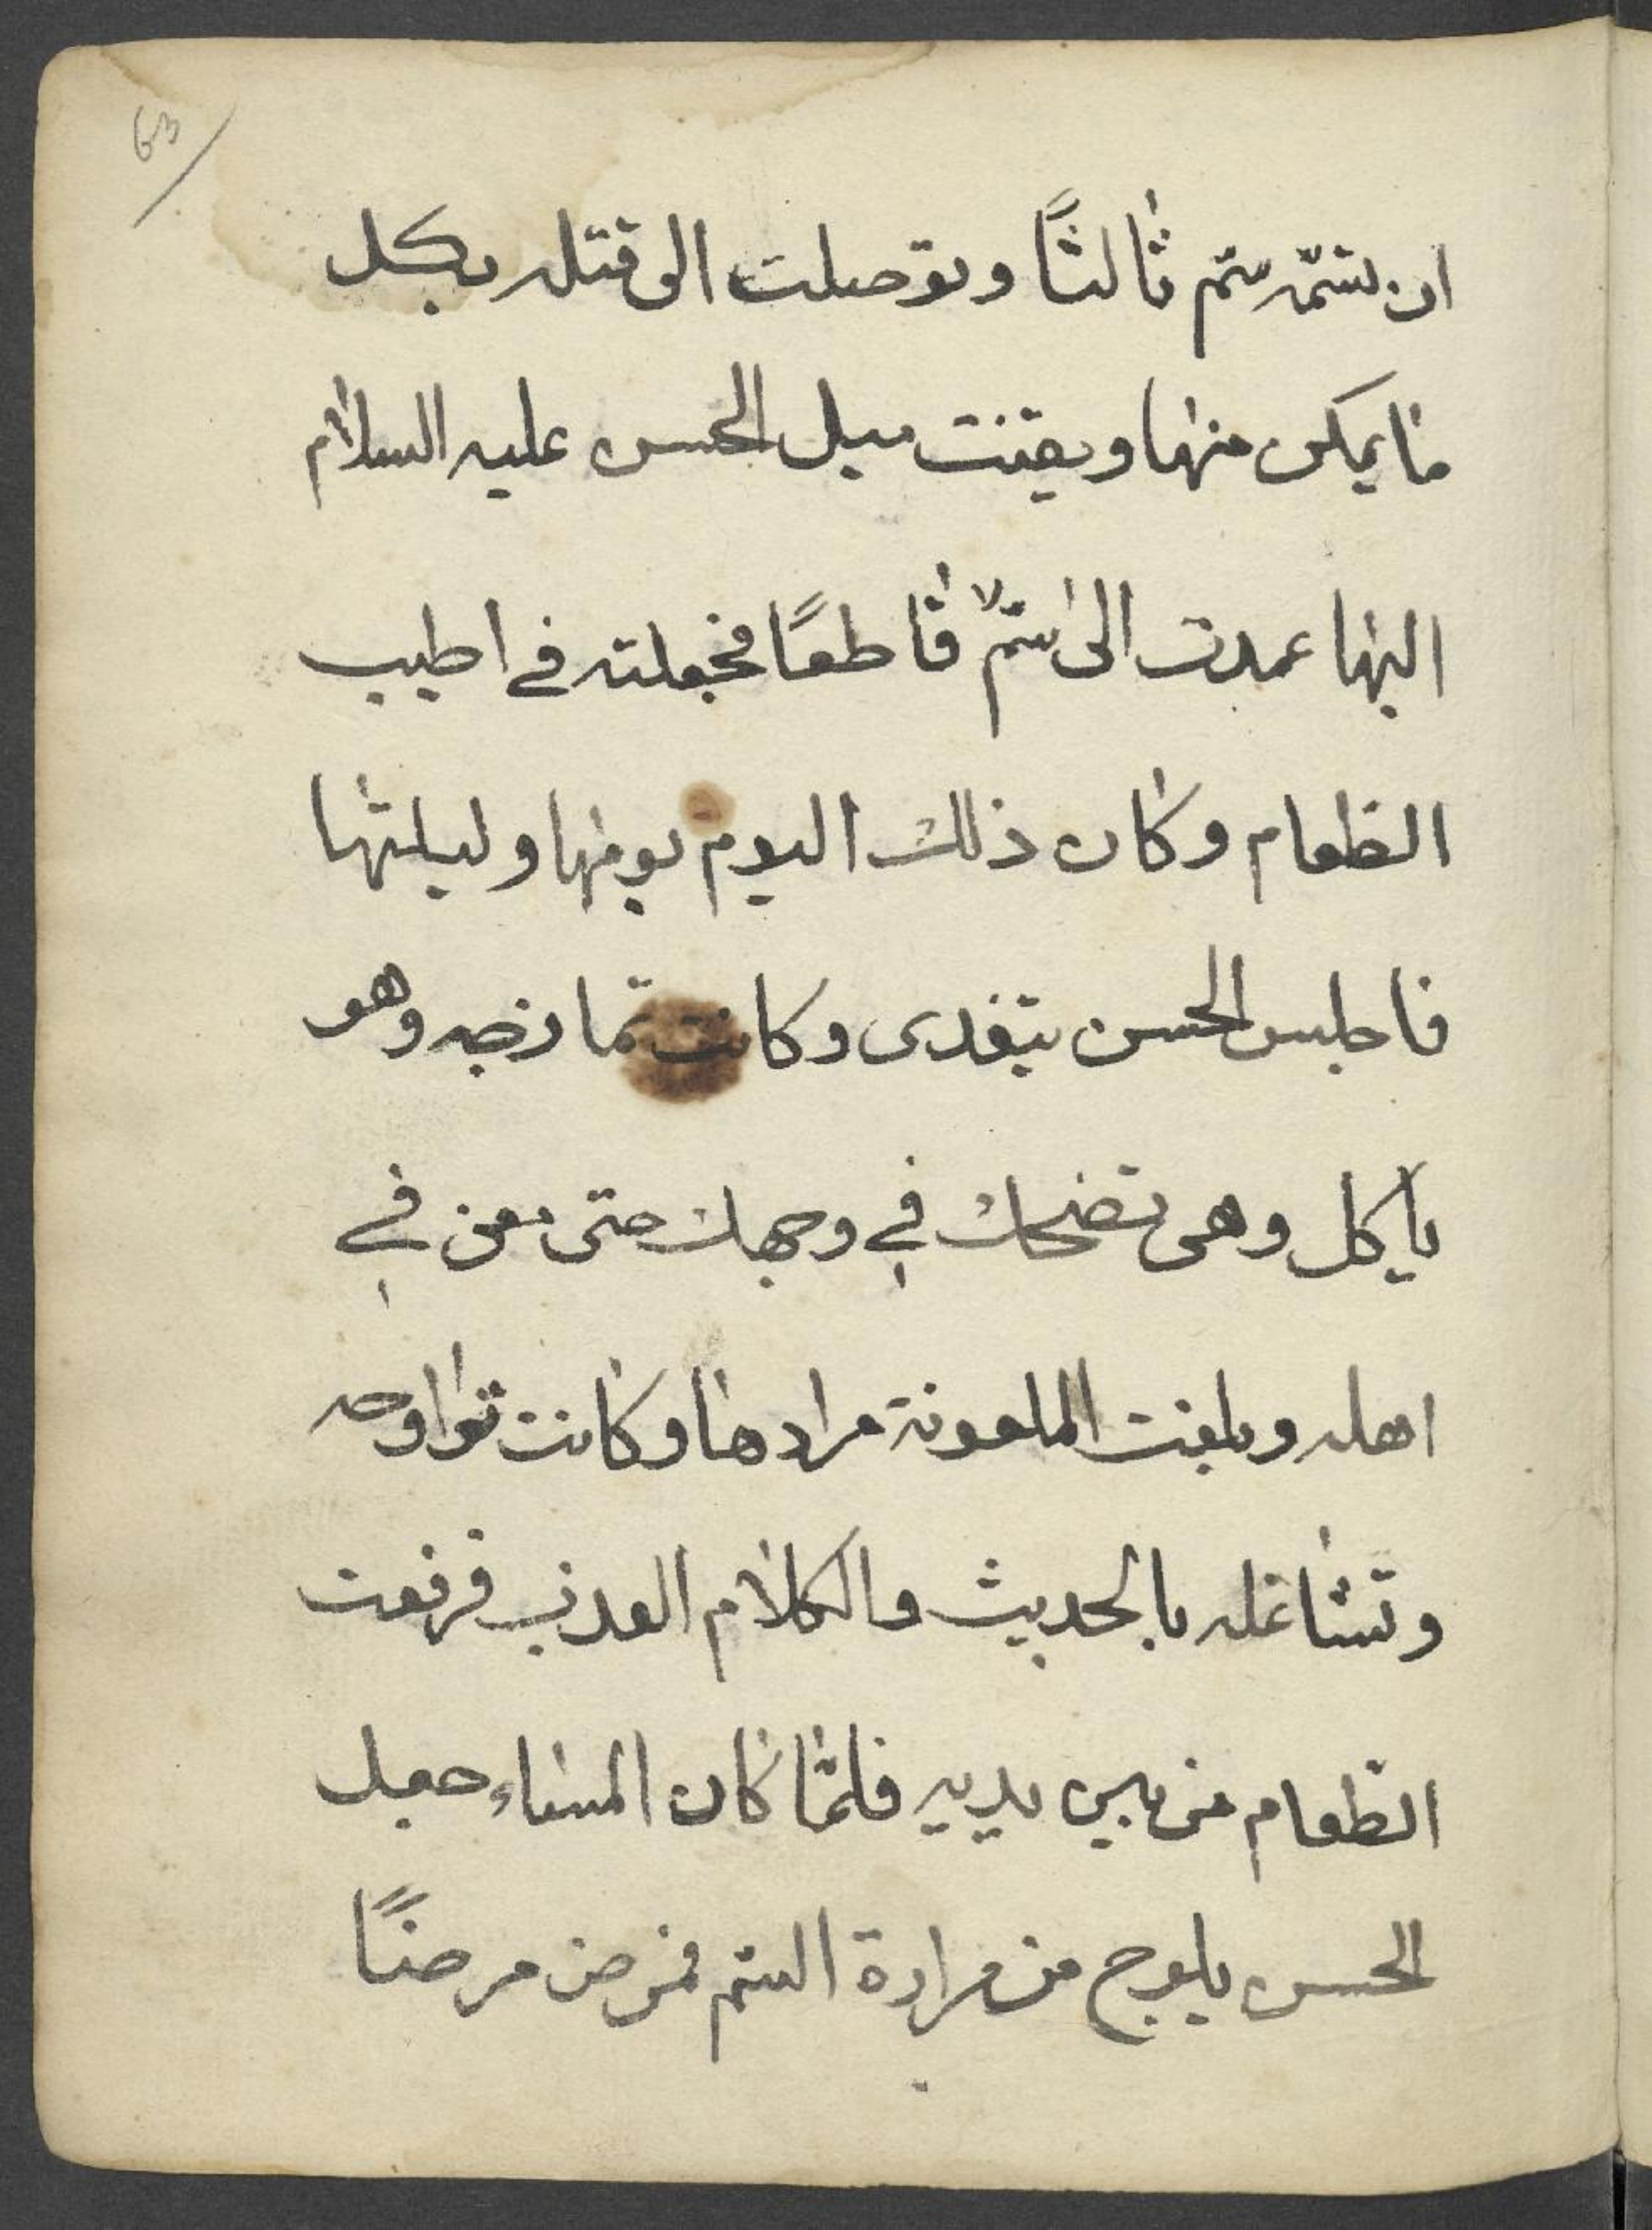 63
ان تسمّه سمّ ثالثًا وتوصلت الى قتله بكل
ما يمكن منها وتيقنت ميل الحسن عليه السلام
اليها عمدت الى سمّ قاطعًا فجعلته في اطيب
الطعام وكان ذلك اليوم يومها وليلتها
فاجلس الحسن يتغدى وكانت تمازحه وهو
يأكل وهي تضحك في وجهك حتى معن في
اهله وبلغت الملعونة مرادها وكانت
وتشاغله بالحديث والكلام العذب فرفعت
الطعام من بين يديه فلمّا كان المساء جعل
الحسن يلوج من مرارة السمّ فمرض مرضًا